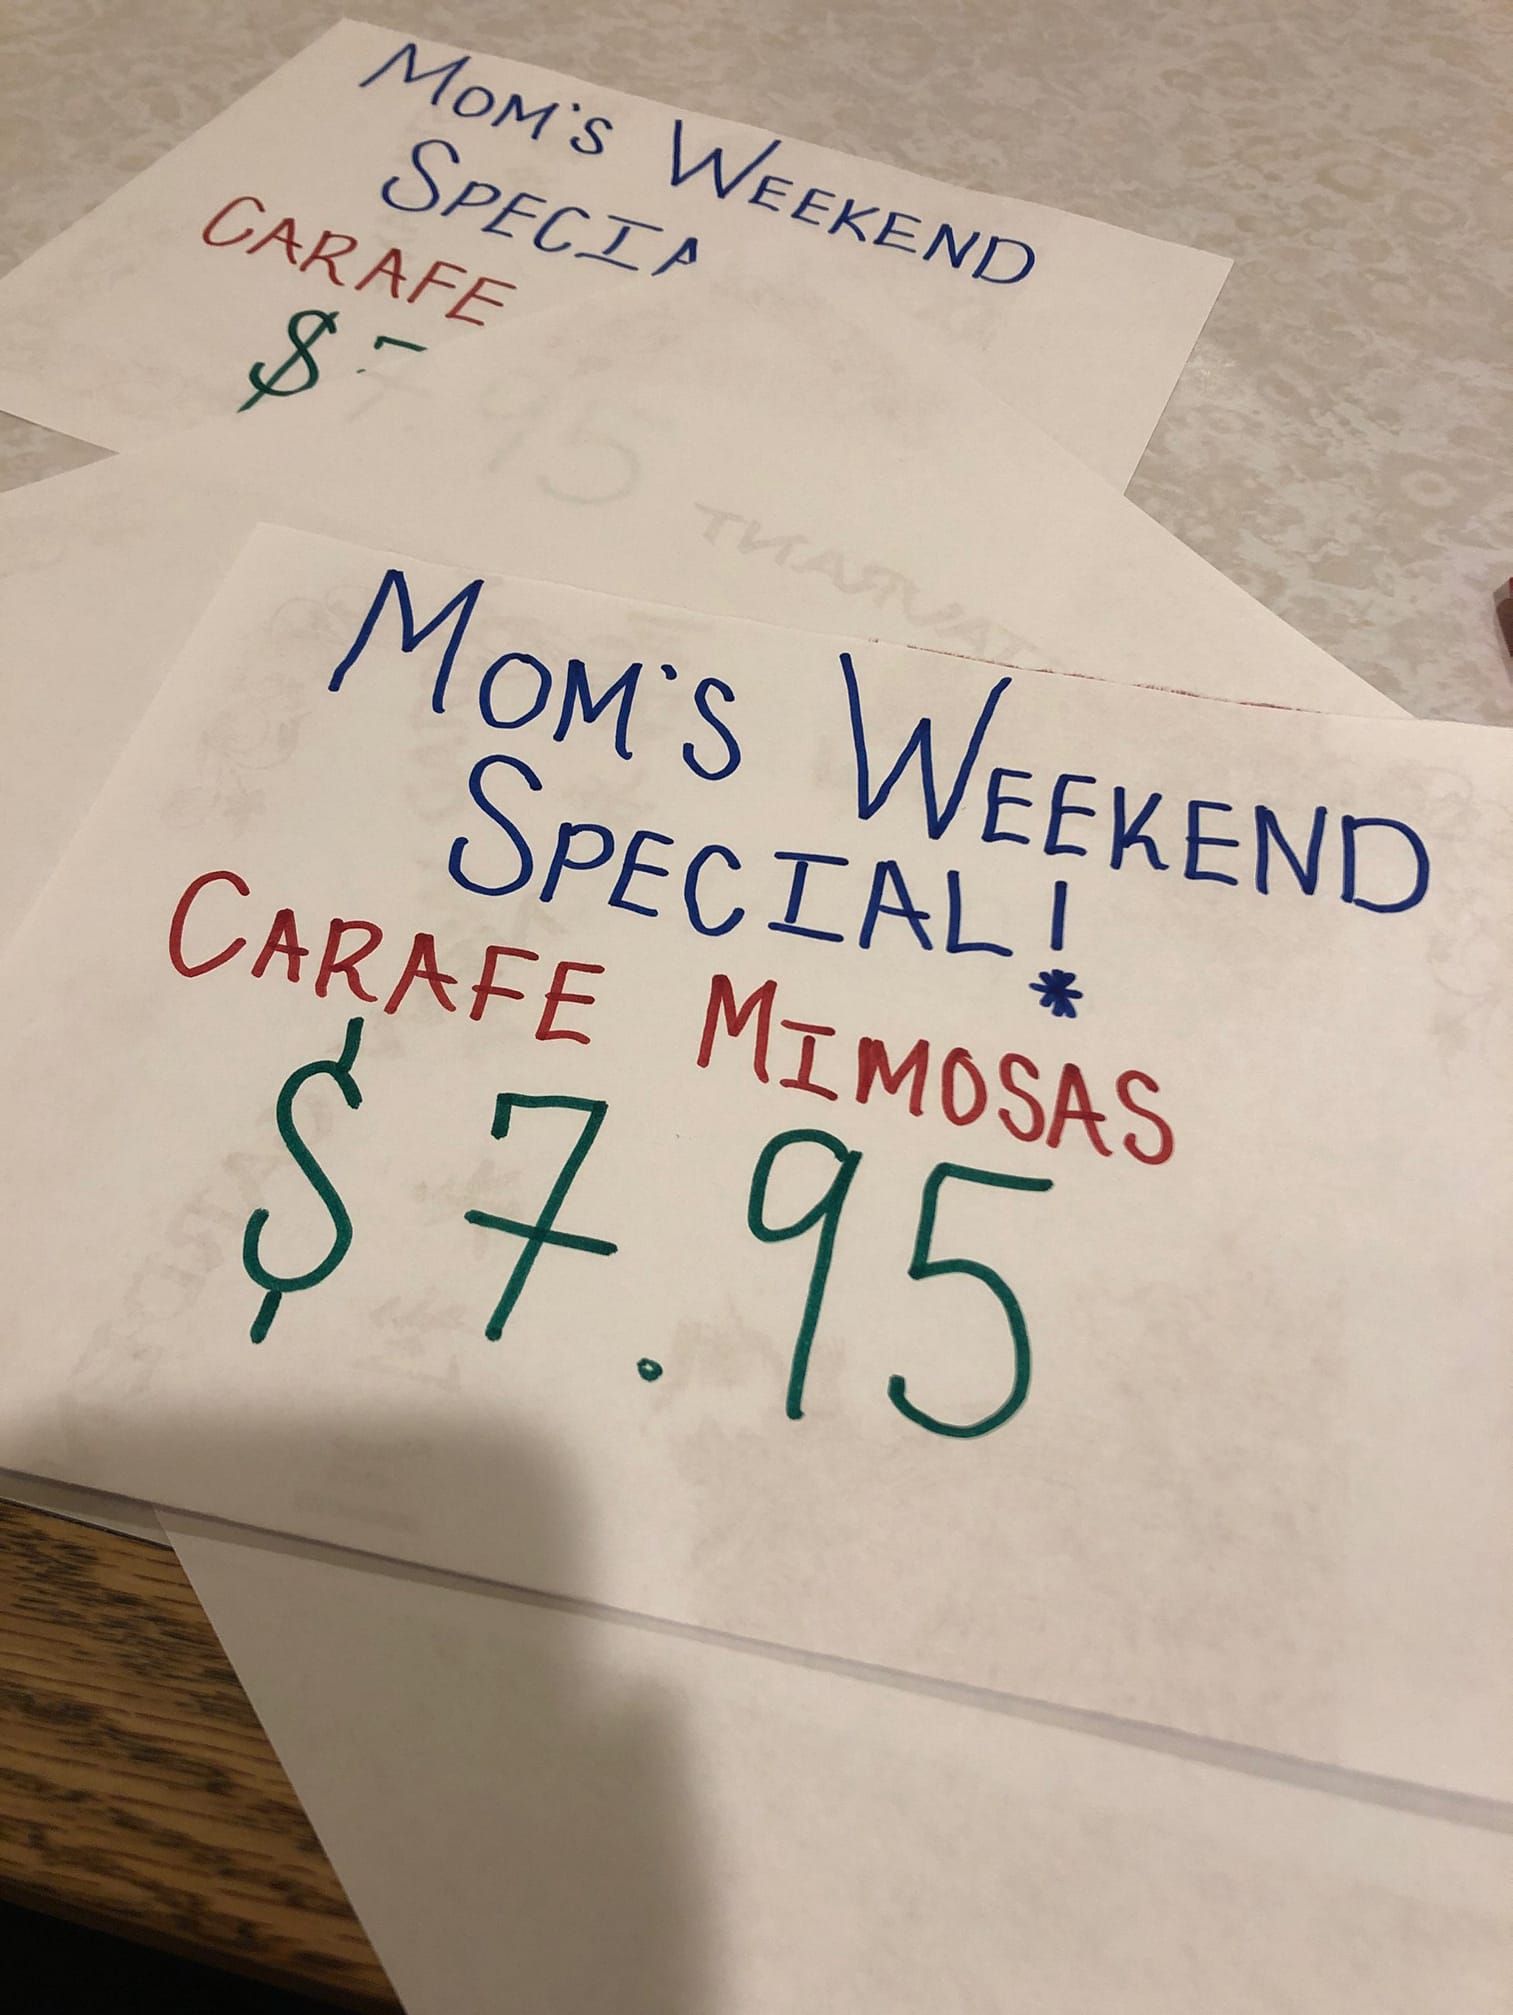 MOM'S WEEKEND
SPECIA
CARAFE
$7.95
TAURANT
MOM'S WEEKEND
SPECIAL!*
CARAFE MIMOSAS
$7.95